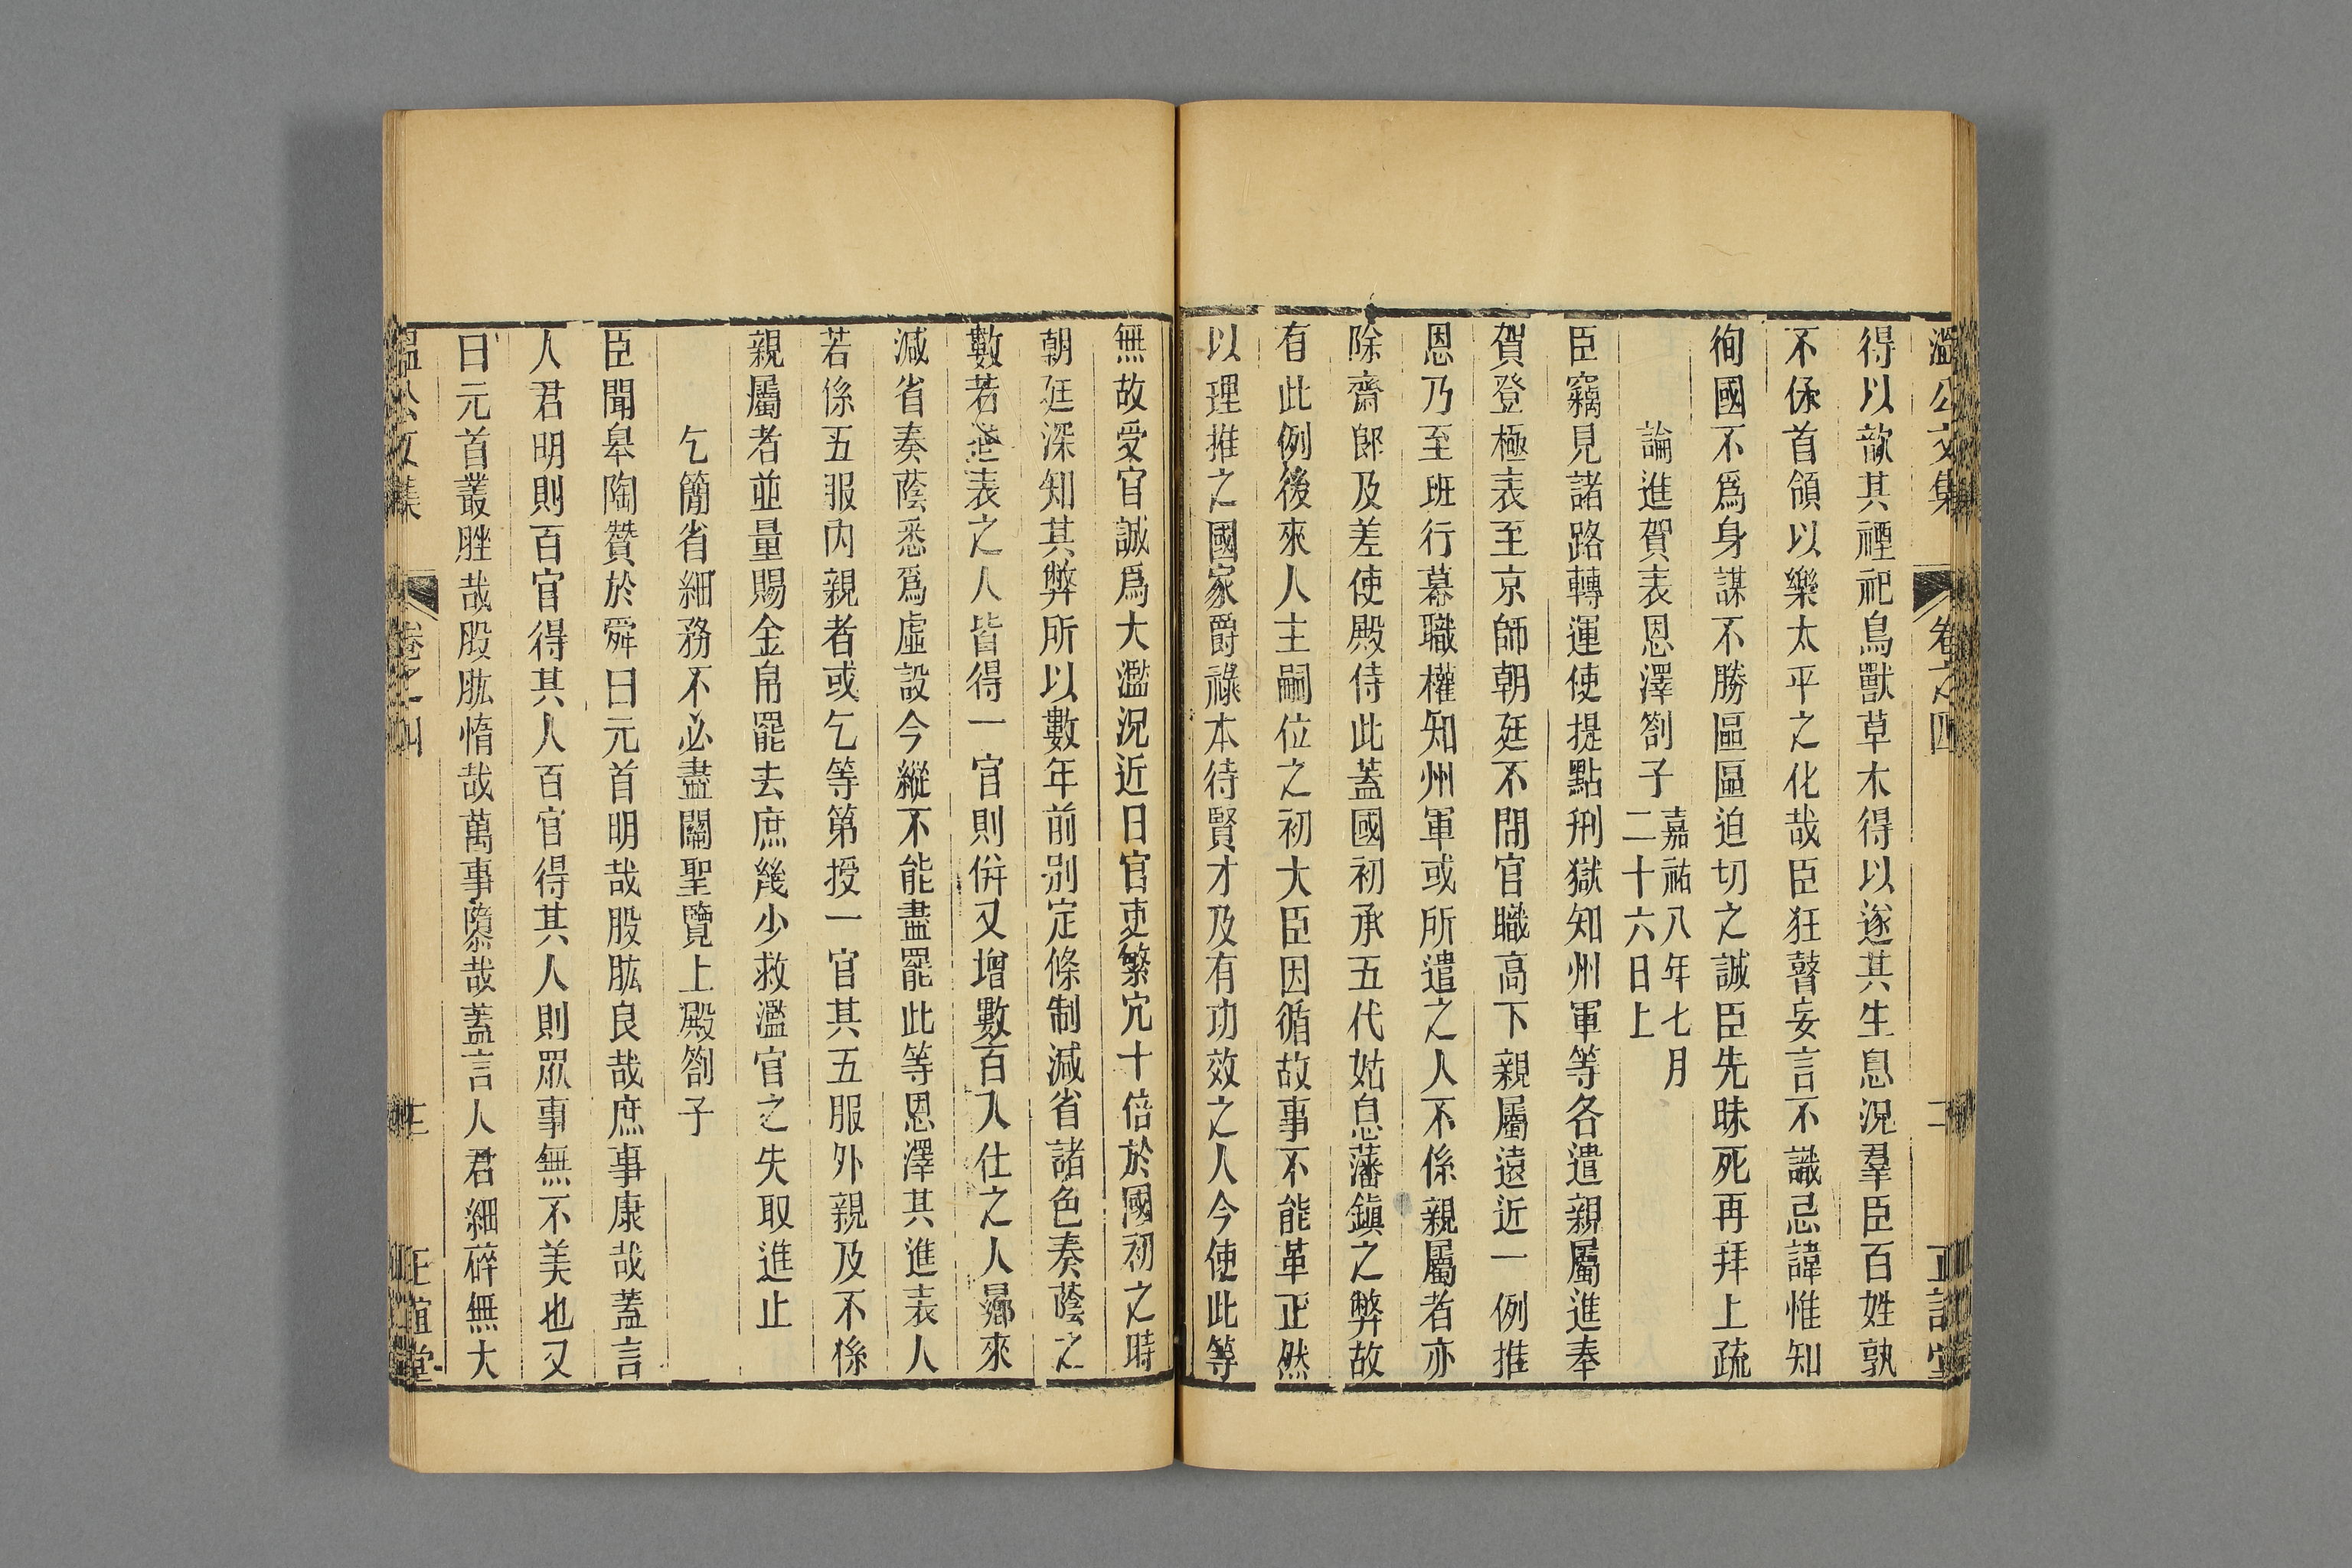 溫公文集 卷之四 二 正誼堂
得以歆其禋祀鳥獸草木得以遂其生息況羣臣百姓孰
不保首領以樂太平之化哉臣狂瞽妄言不識忌諱惟知
徇國不爲身謀不勝區區迫切之誠臣先昧死再拜上疏
論進賀表恩澤劄子
嘉祐八年七月
二十六日上
臣竊見諸路轉運使提點刑獄知州軍等各遣親屬進奉
賀登極表至京師朝廷不問官職高下親屬遠近一例推
恩乃至班行幕職權知州軍或所遣之人不係親屬者亦
除齋郎及差使殿侍此蓋國初承五代姑息藩鎭之弊故
有此例後來人主嗣位之初大臣因循故事不能革正然
以理推之國家爵祿本待賢才及有功效之人今使此等
無故受官誠爲大濫況近日官吏繁冗十倍於國初之時
朝廷深知其弊所以數年前別定條制減省諸色奏蔭之
數若進表之人皆得一官則併又增數百入仕之人曏來
減省奏蔭悉爲虛設今縱不能盡罷此等恩澤其進表人
若係五服內親者或乞等第授一官其五服外親及不係
親屬者並量賜金帛罷去庶幾少救濫官之失取進止
乞簡省細務不必盡關聖覽上殿劄子
臣聞皋陶贊於舜曰元首明哉股肱良哉庶事康哉蓋言
人君明則百官得其人百官得其人則眾事無不美也又
曰元首叢脞哉股肱惰哉萬事隳哉蓋言人君細碎無大
溫公文集 卷之四 正誼堂